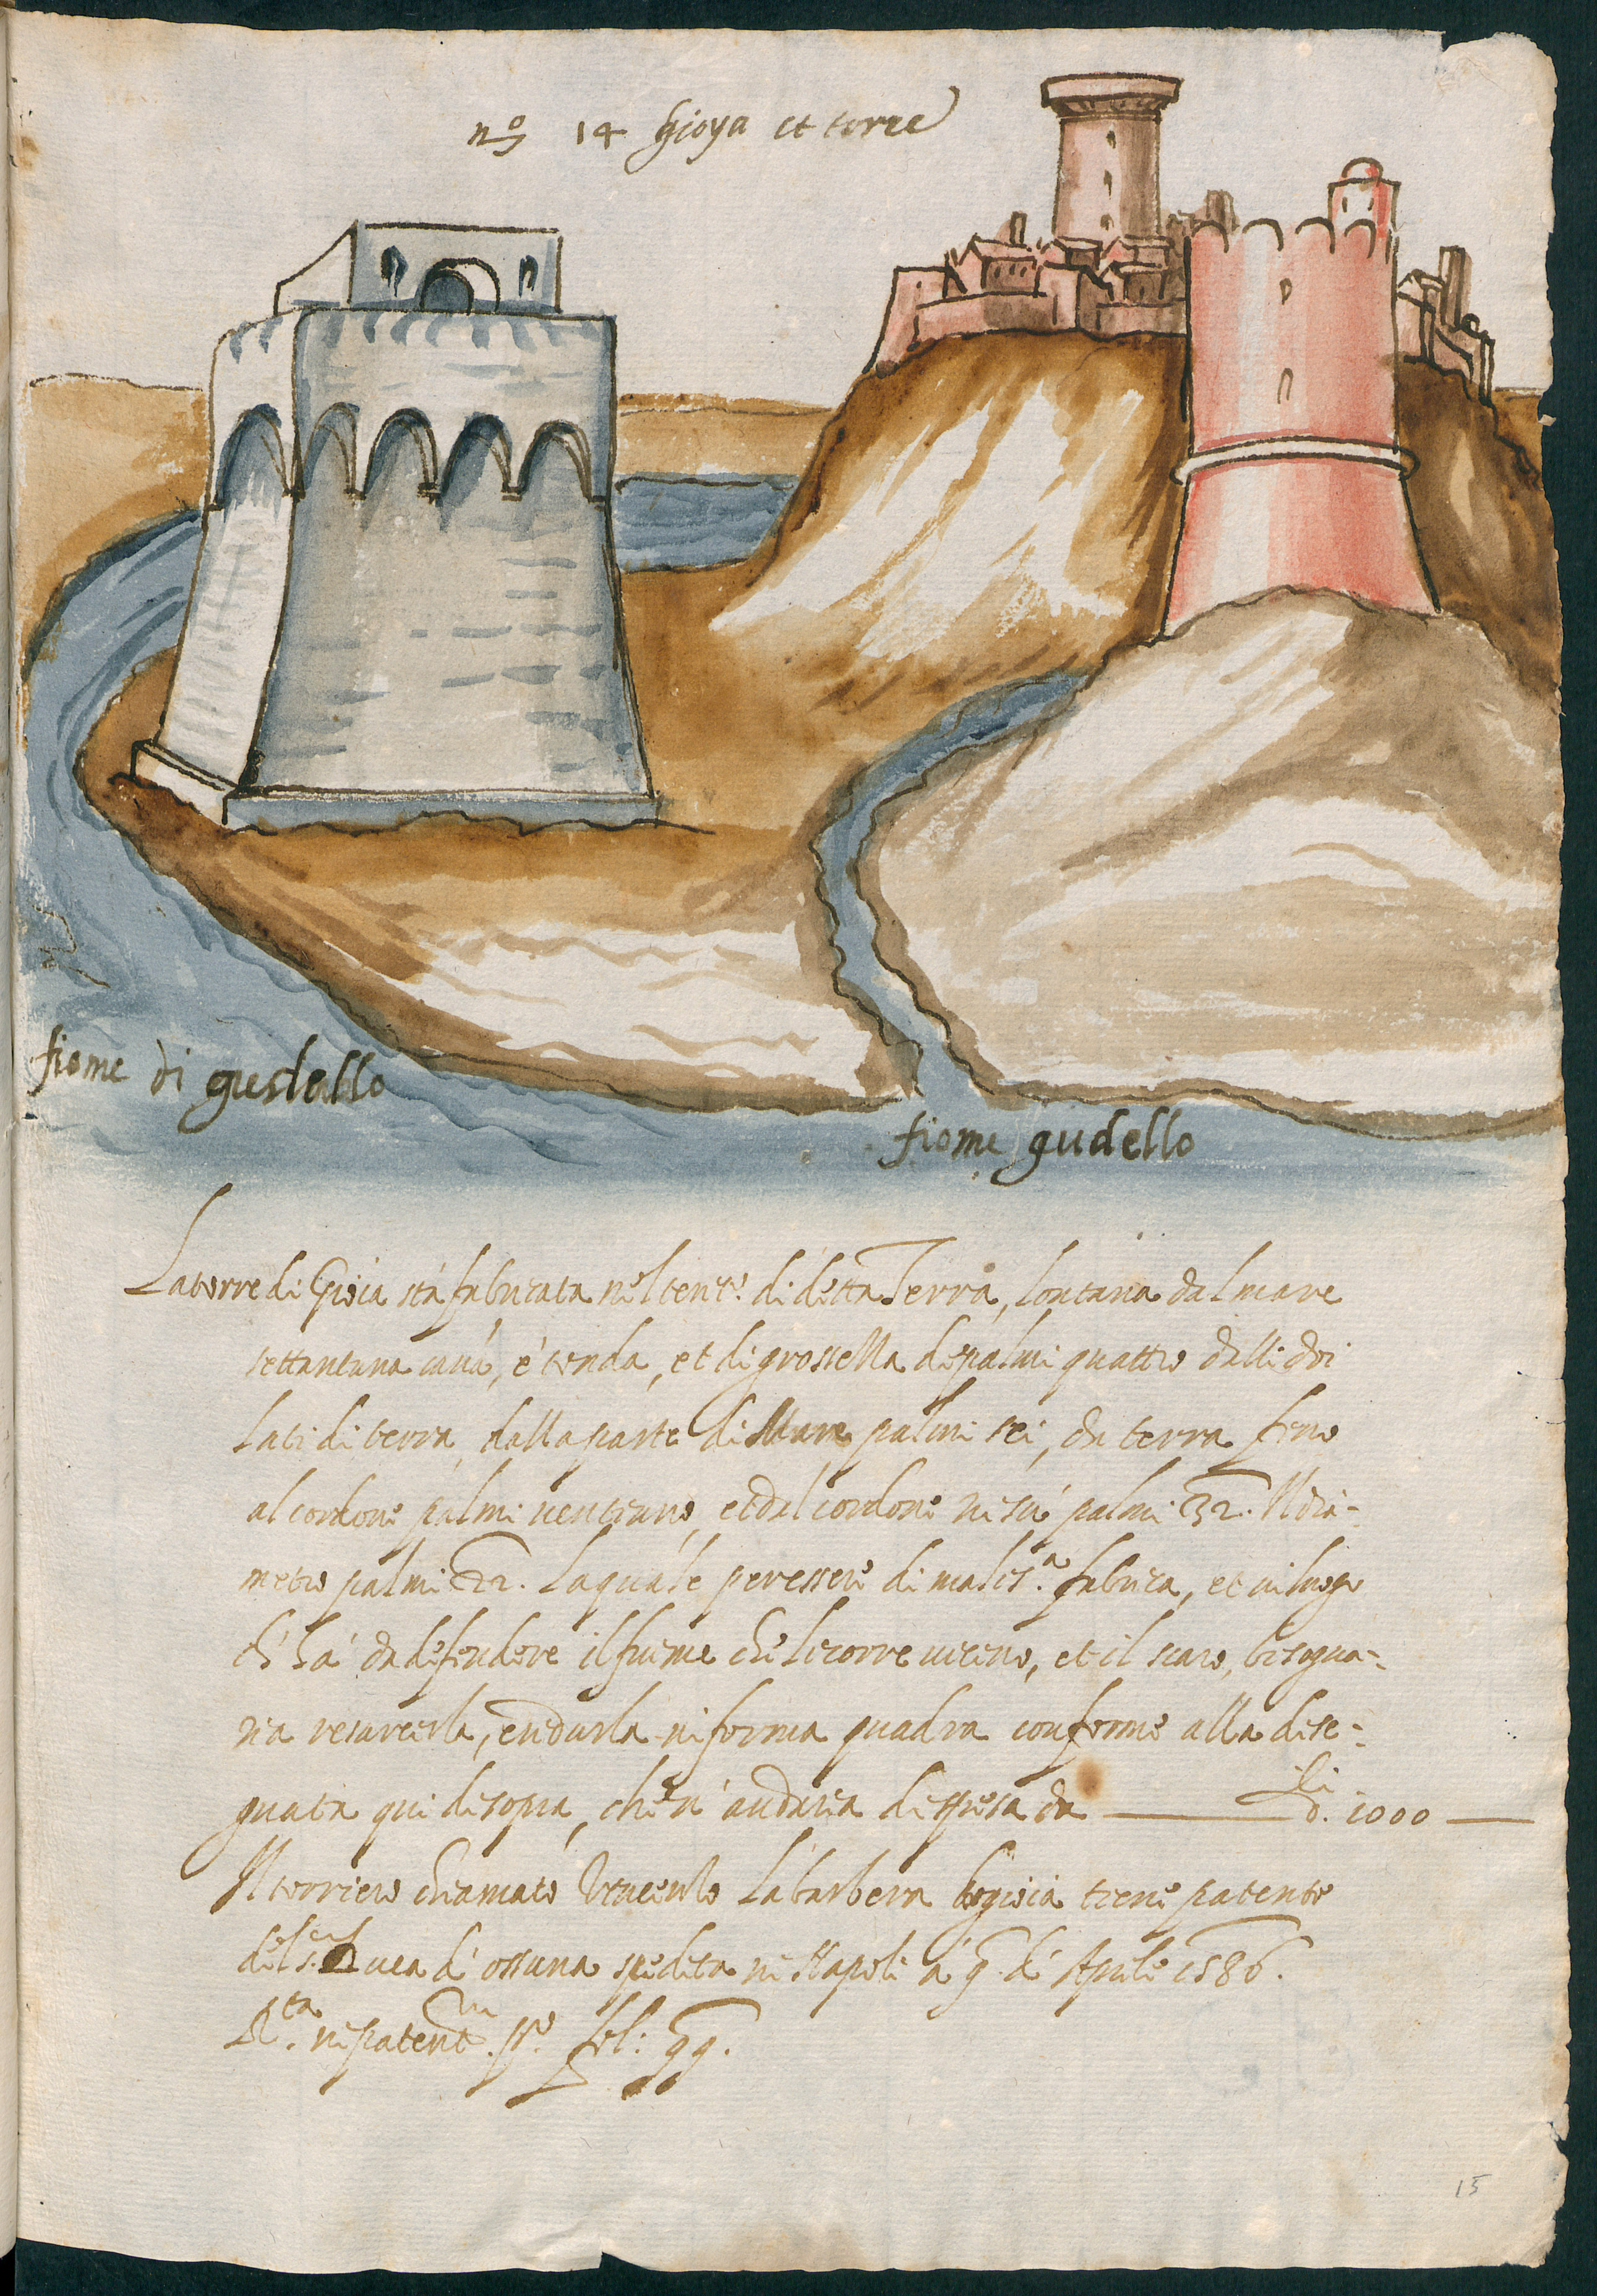 nº 14 Gioya et torre
fiome di gustallo
fiome gudello
La torre di Gioia stà fabricata nel tent.º di detta Terra, lontana dal mare
settantuna cana, è tonda, et di grossezza de palmi quattro dalli doi
lati di terra, dalla parte di Mare palmi sei, da terra fino
al cordone palmi ventiuno, et dal cordone in su palmi 32. Il dia-
metro palmi 22. La quale per essere di malis.ª fabrica, et in luogo
ch' hà da defendere il fiume che li corre vicino, et il scaro, bisogna-
ria resarcirla, et redurla in forma quadra conforme alla dise-
gnata qui di sopra, che n' andaria di spesa da — d.ti 1000 —
Il torriero chiamato Vincenzo La barbera tiene patente
del s. Duca d' ossuna spedita in Napoli à 9 di Aprile 1586.
R.ta in patent. p.º fol: 99.
15